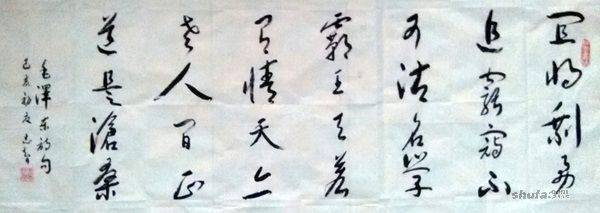 宜将剩勇
追窮寇不
可沽名学
霸王天若
有情天亦
老人间正
道是滄桑
毛澤东诗句
己亥初夏